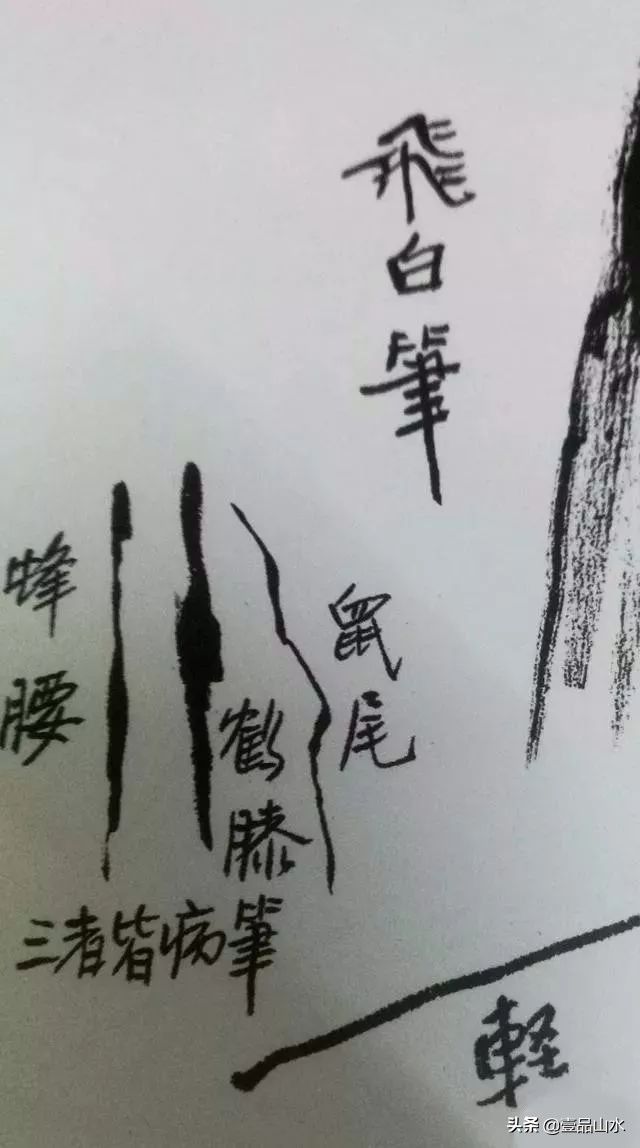 飛白筆
鼠尾
鶴膝筆
蜂腰
三者皆病筆
軽
头条 @壹品山水